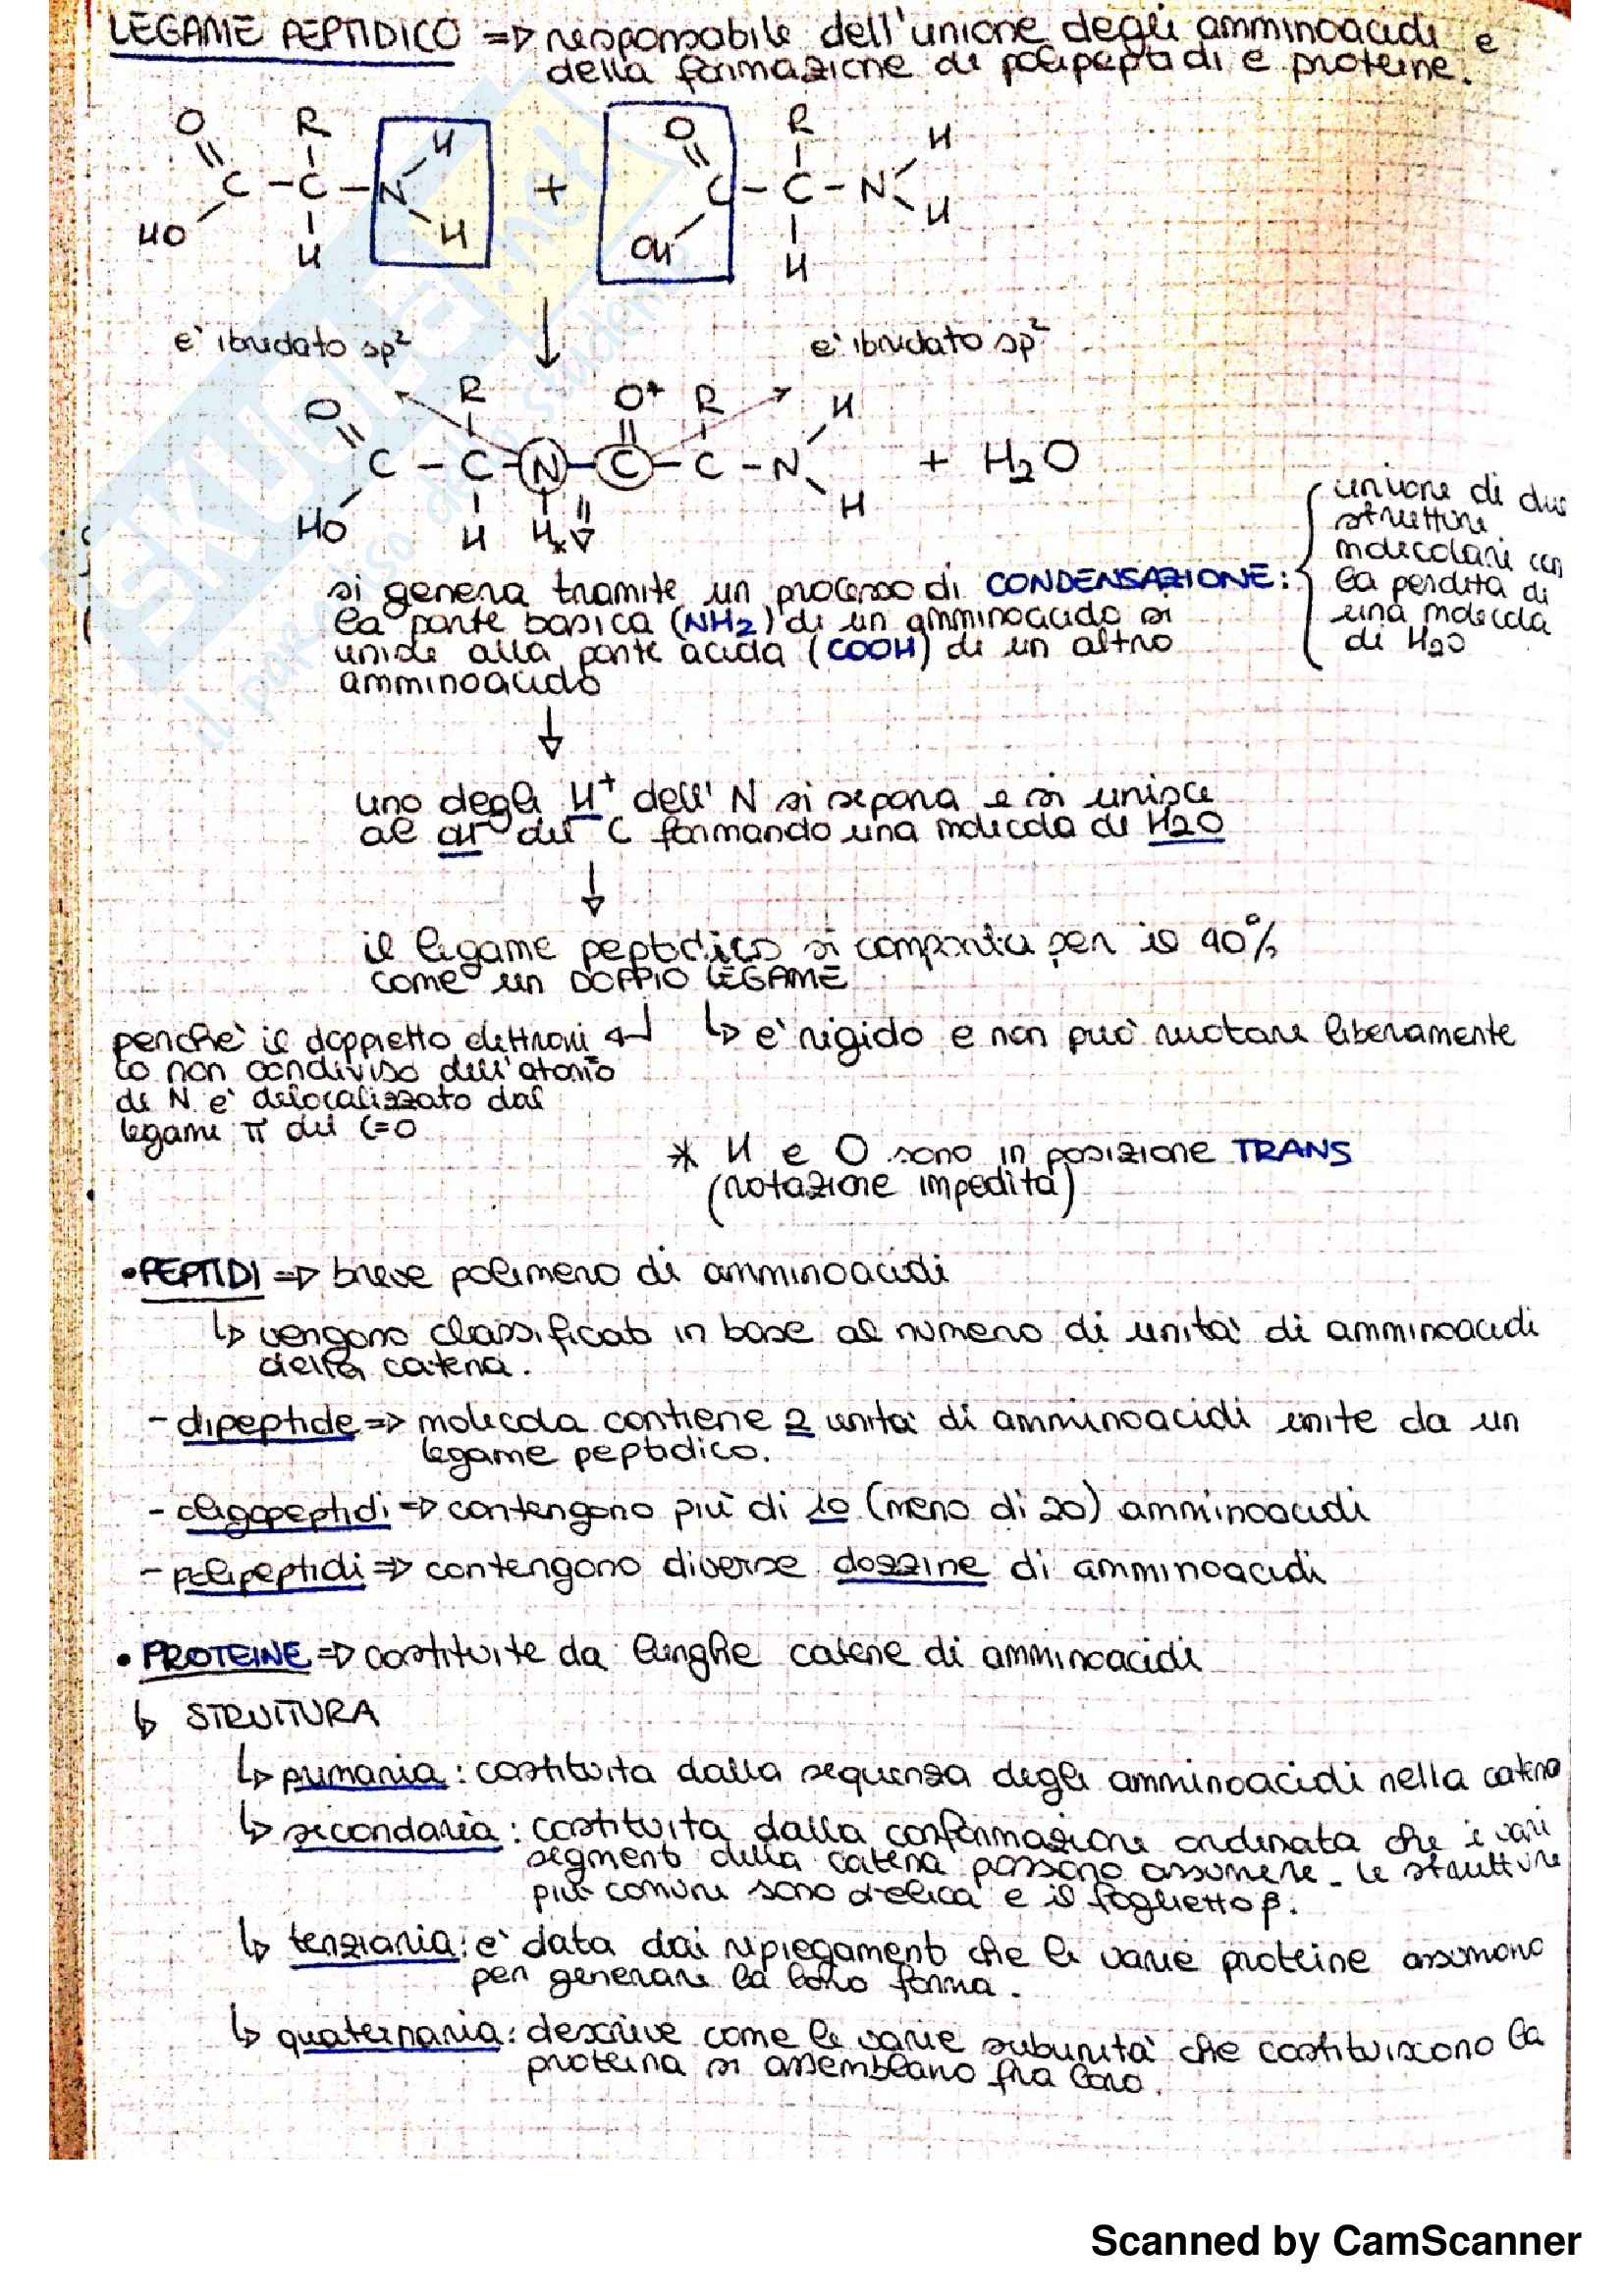 LEGAME PEPTIDICO => responsabile dell'unione degli amminoacidi e
della formazione di polipeptidi e proteine.
O R H O R H
C - C - N + C - C - N
HO H H OH H H
è ibridato sp² è ibridato sp²
O R O* R H
C - C - N - C - C - N + H2O
HO H H* H
si genera tramite un processo di CONDENSAZIONE:
la parte basica (NH2) di un amminoacido si
unisce alla parte acida (COOH) di un altro
amminoacido
unione di due
strutture
molecolari con
la perdita di
una molecola
di H2O
uno degli H+ dell'N si separa e si unisce
al OH del C formando una molecola di H2O
il legame peptidico si comporta per il 40%
come un DOPPIO LEGAME
perchè il doppietto elettroni
co non condiviso dell'atomo
di N è delocalizzato dal
legami π del C=O
è rigido e non può ruotare liberamente
* H e O sono in posizione TRANS
(rotazione impedita)
• PEPTIDI => breve polimero di amminoacidi
vengono classificati in base al numero di unità di amminoacidi
della catena.
- dipeptide => molecola contiene 2 unità di amminoacidi unite da un
legame peptidico.
- oligopeptidi => contengono più di 10 (meno di 20) amminoacidi
- polipeptidi => contengono diverse dozzine di amminoacidi
• PROTEINE => costituite da lunghe catene di amminoacidi
STRUTTURA
primaria: costituita dalla sequenza degli amminoacidi nella catena
secondaria: costituita dalla conformazione ordinata che i vari
segmenti della catena possono assumere. le strutture
più comuni sono α-elica e il foglietto β.
terziaria: è data dai ripiegamenti che le varie proteine assumono
per generare la loro forma.
quaternaria: descrive come le varie subunità che costituiscono la
proteina si assemblano fra loro.
Scanned by CamScanner